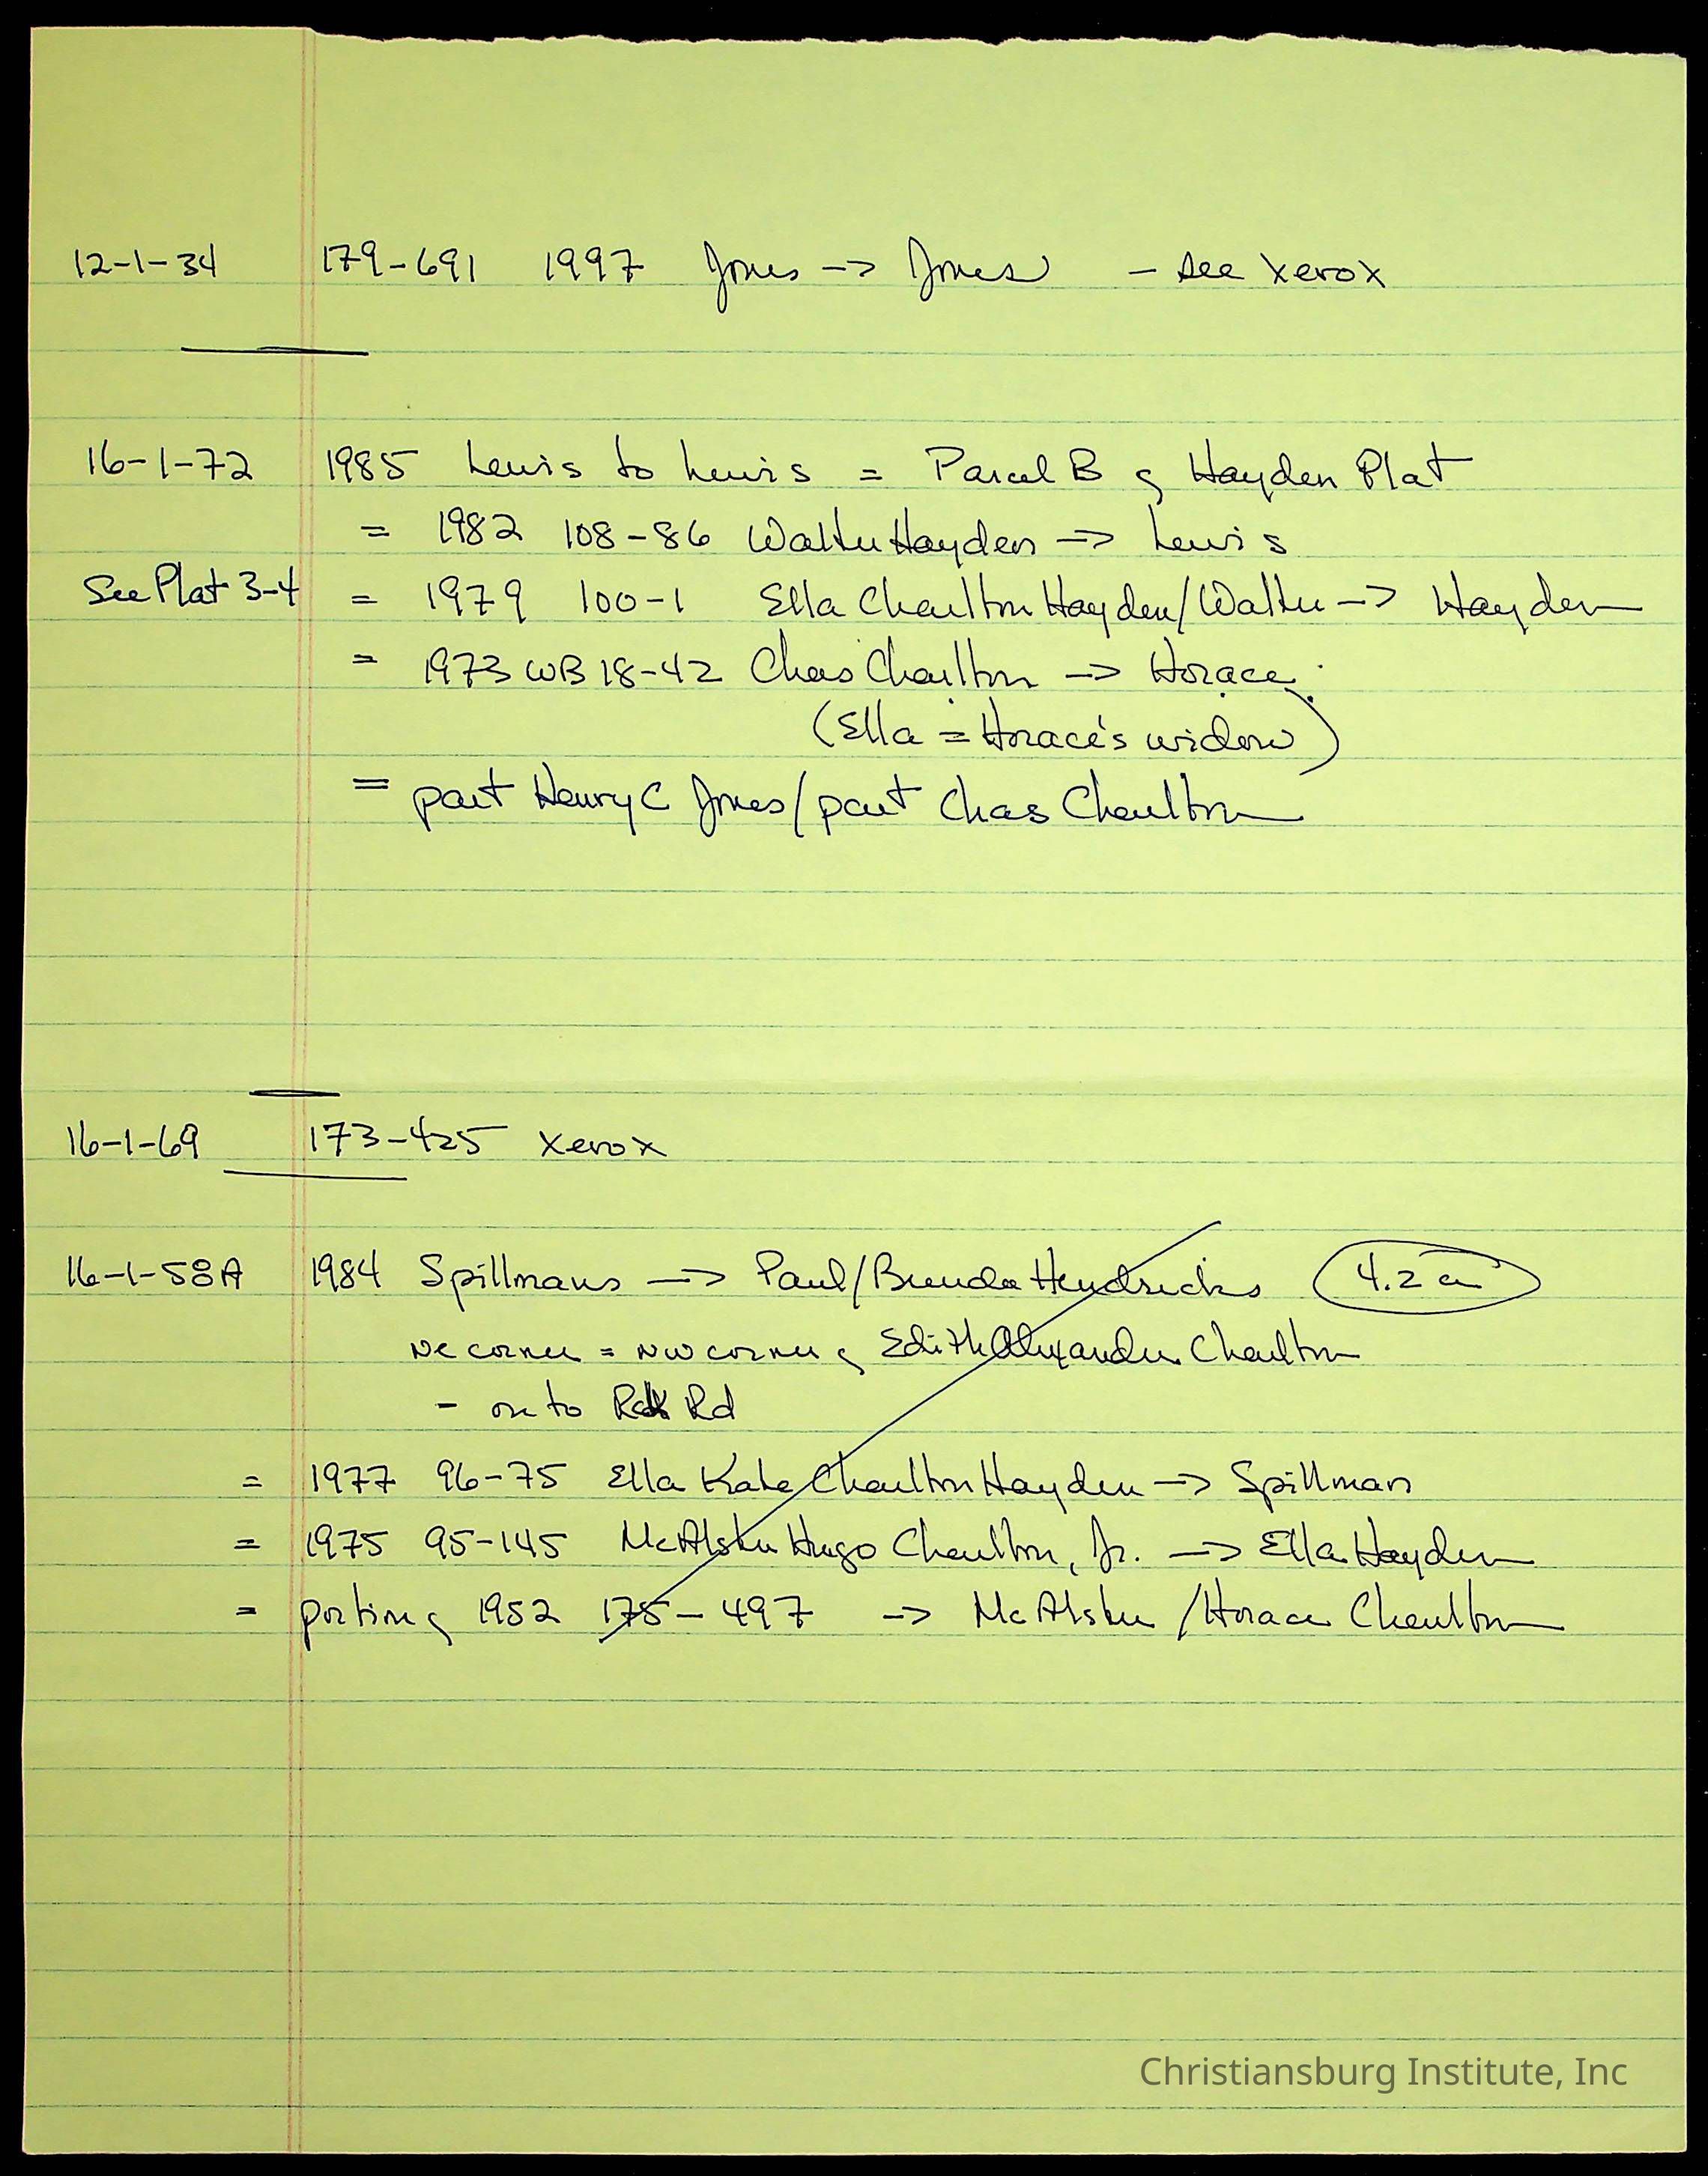 12-1-34 179-691 1997 Jones -> Jones - see xerox
16-1-72 1985 Lewis to Lewis = Parcel B of Hayden Plat
= 1982 108-86 Walter Hayden -> Lewis
See Plat 3-4 = 1979 100-1 Ella Charlton Hayden/Walter -> Hayden
= 1973 WB 18-42 Chas Charlton -> Horace
(Ella = Horace's widow)
= part Henry C Jones/part Chas Charlton
16-1-69 173-425 xerox
16-1-58A 1984 Spillmans -> Paul/Brenda Hendricks 4.2 a
NE corner = NW corner of Edith Alexander Charlton
- on to Rd
= 1977 96-75 Ella Kate Charlton Hayden -> Spillman
= 1975 95-145 McAlster Hugo Charlton, Jr. -> Ella Hayden
= portion of 1952 175-497 -> McAlster /Horace Charlton
Christiansburg Institute, Inc